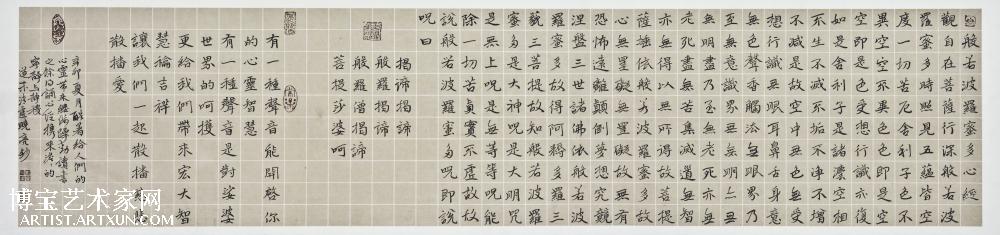 般若波羅蜜多心經
觀自在菩薩行深般若波
羅蜜多時照見五蘊皆空
度一切苦厄舍利子色不
異空空不異色色即是空
空即是色受想行識亦復
如是舍利子是諸法空相
不生不滅不垢不淨不增
不減是故空中無色無受
想行識無眼耳鼻舌身意
無色聲香味觸法無眼界乃
至無意識界無無明亦
無無明盡乃至無老死亦無
老死盡無苦集滅道無智
亦無得以無所得故菩提
薩埵依般若波羅蜜多故
心無罣礙無罣礙故無有
恐怖遠離顛倒夢想究竟
涅盤三世諸佛依般若波
羅蜜多故得阿
三藐三菩提故知般若波羅
蜜多是大神咒是大明咒
是無上咒是無等等咒能
除一切苦真實不虛故
說般若波羅蜜多咒即說
咒曰
揭諦揭諦
般羅揭諦
般羅僧揭諦
菩提莎婆呵
有一種聲音能開啓你
的心靈智慧
有一種聲音是對娑婆
世界的呵護
更給我們帶來宏大智
慧福吉祥
讓我們一起散播
散播愛
辛卯夏月
博宝艺术家网
ARTIST.ARTXUN.COM